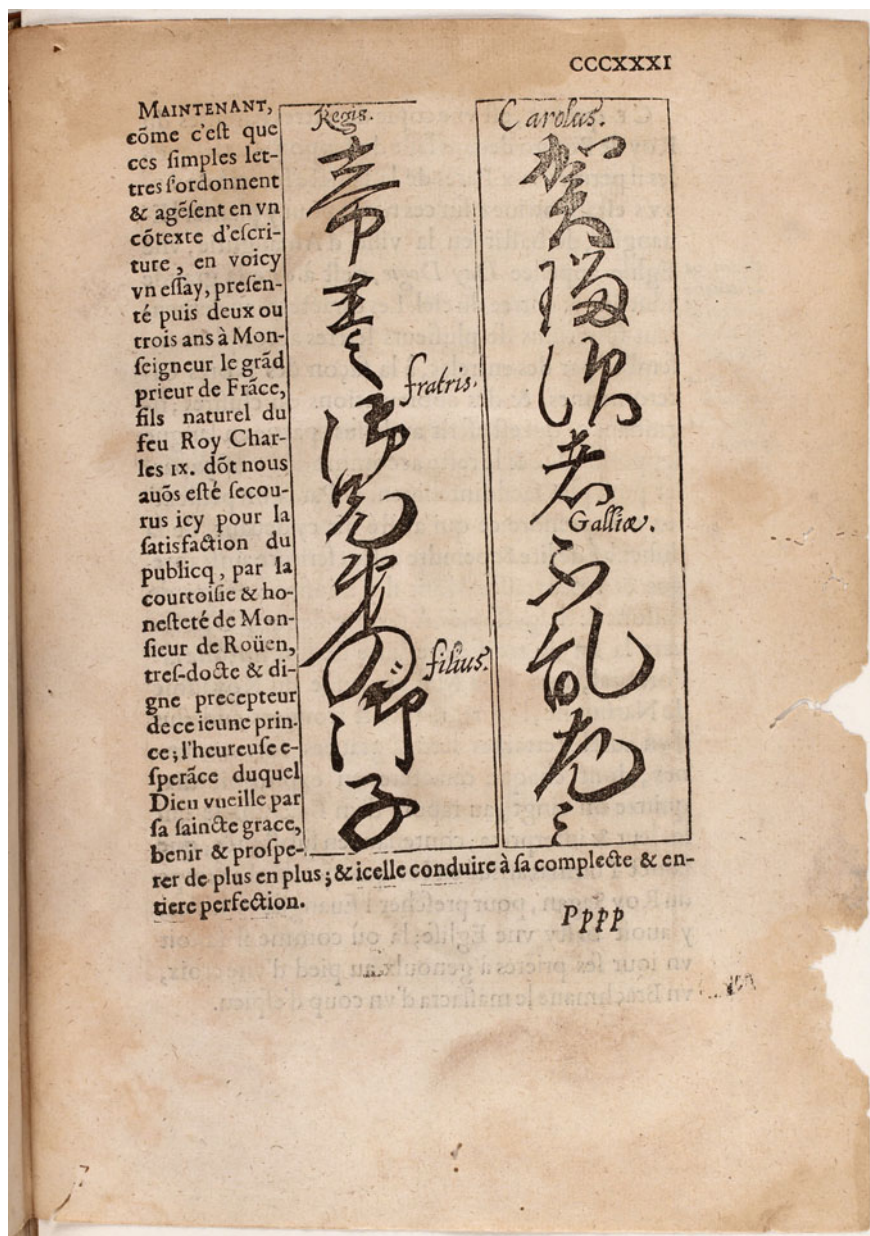 CCCXXXI
MAINTENANT,
cōme c'eſt que
ces ſimples let-
tres ſ'ordonnent
& agēſent en vn
cōtexte d'eſcri-
ture, en voicy
vn eſſay, preſen-
té puis deux ou
trois ans à Mon-
ſeigneur le grād
prieur de Frāce,
fils naturel du
feu Roy Char-
les IX. dōt nous
auōs eſté ſecou-
rus icy pour la
ſatisfaction du
publicq, par la
courtoiſie & ho-
neſteté de Mon-
ſieur de Roüen,
tres-docte & di-
gne precepteur
de ce ieune prin-
ce; l'heureuſe e-
ſperāce duquel
Dieu vueille par
ſa ſaincte grace,
benir & proſpe-
rer de plus en plus; & icelle conduire à ſa complecte & en-
tiere perfection.
Carolus.
賀瑠次者
Galliæ.
不乱
Regis.
帝王之
fratris.
御兄弟の
filius.
御子
Pppp